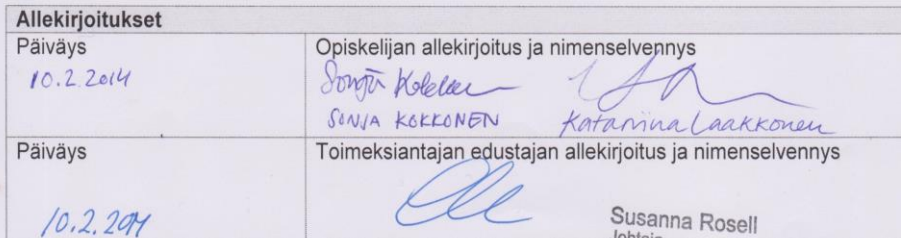 Allekirjoitukset
Päiväys
10.2.2014
Opiskelijan allekirjoitus ja nimenselvennys
Sonja Kokkonen
SONJA KOKKONEN Katariina Laakkonen
Päiväys
10.2.2014
Toimeksiantajan edustajan allekirjoitus ja nimenselvennys
Susanna Rosell
johtaja